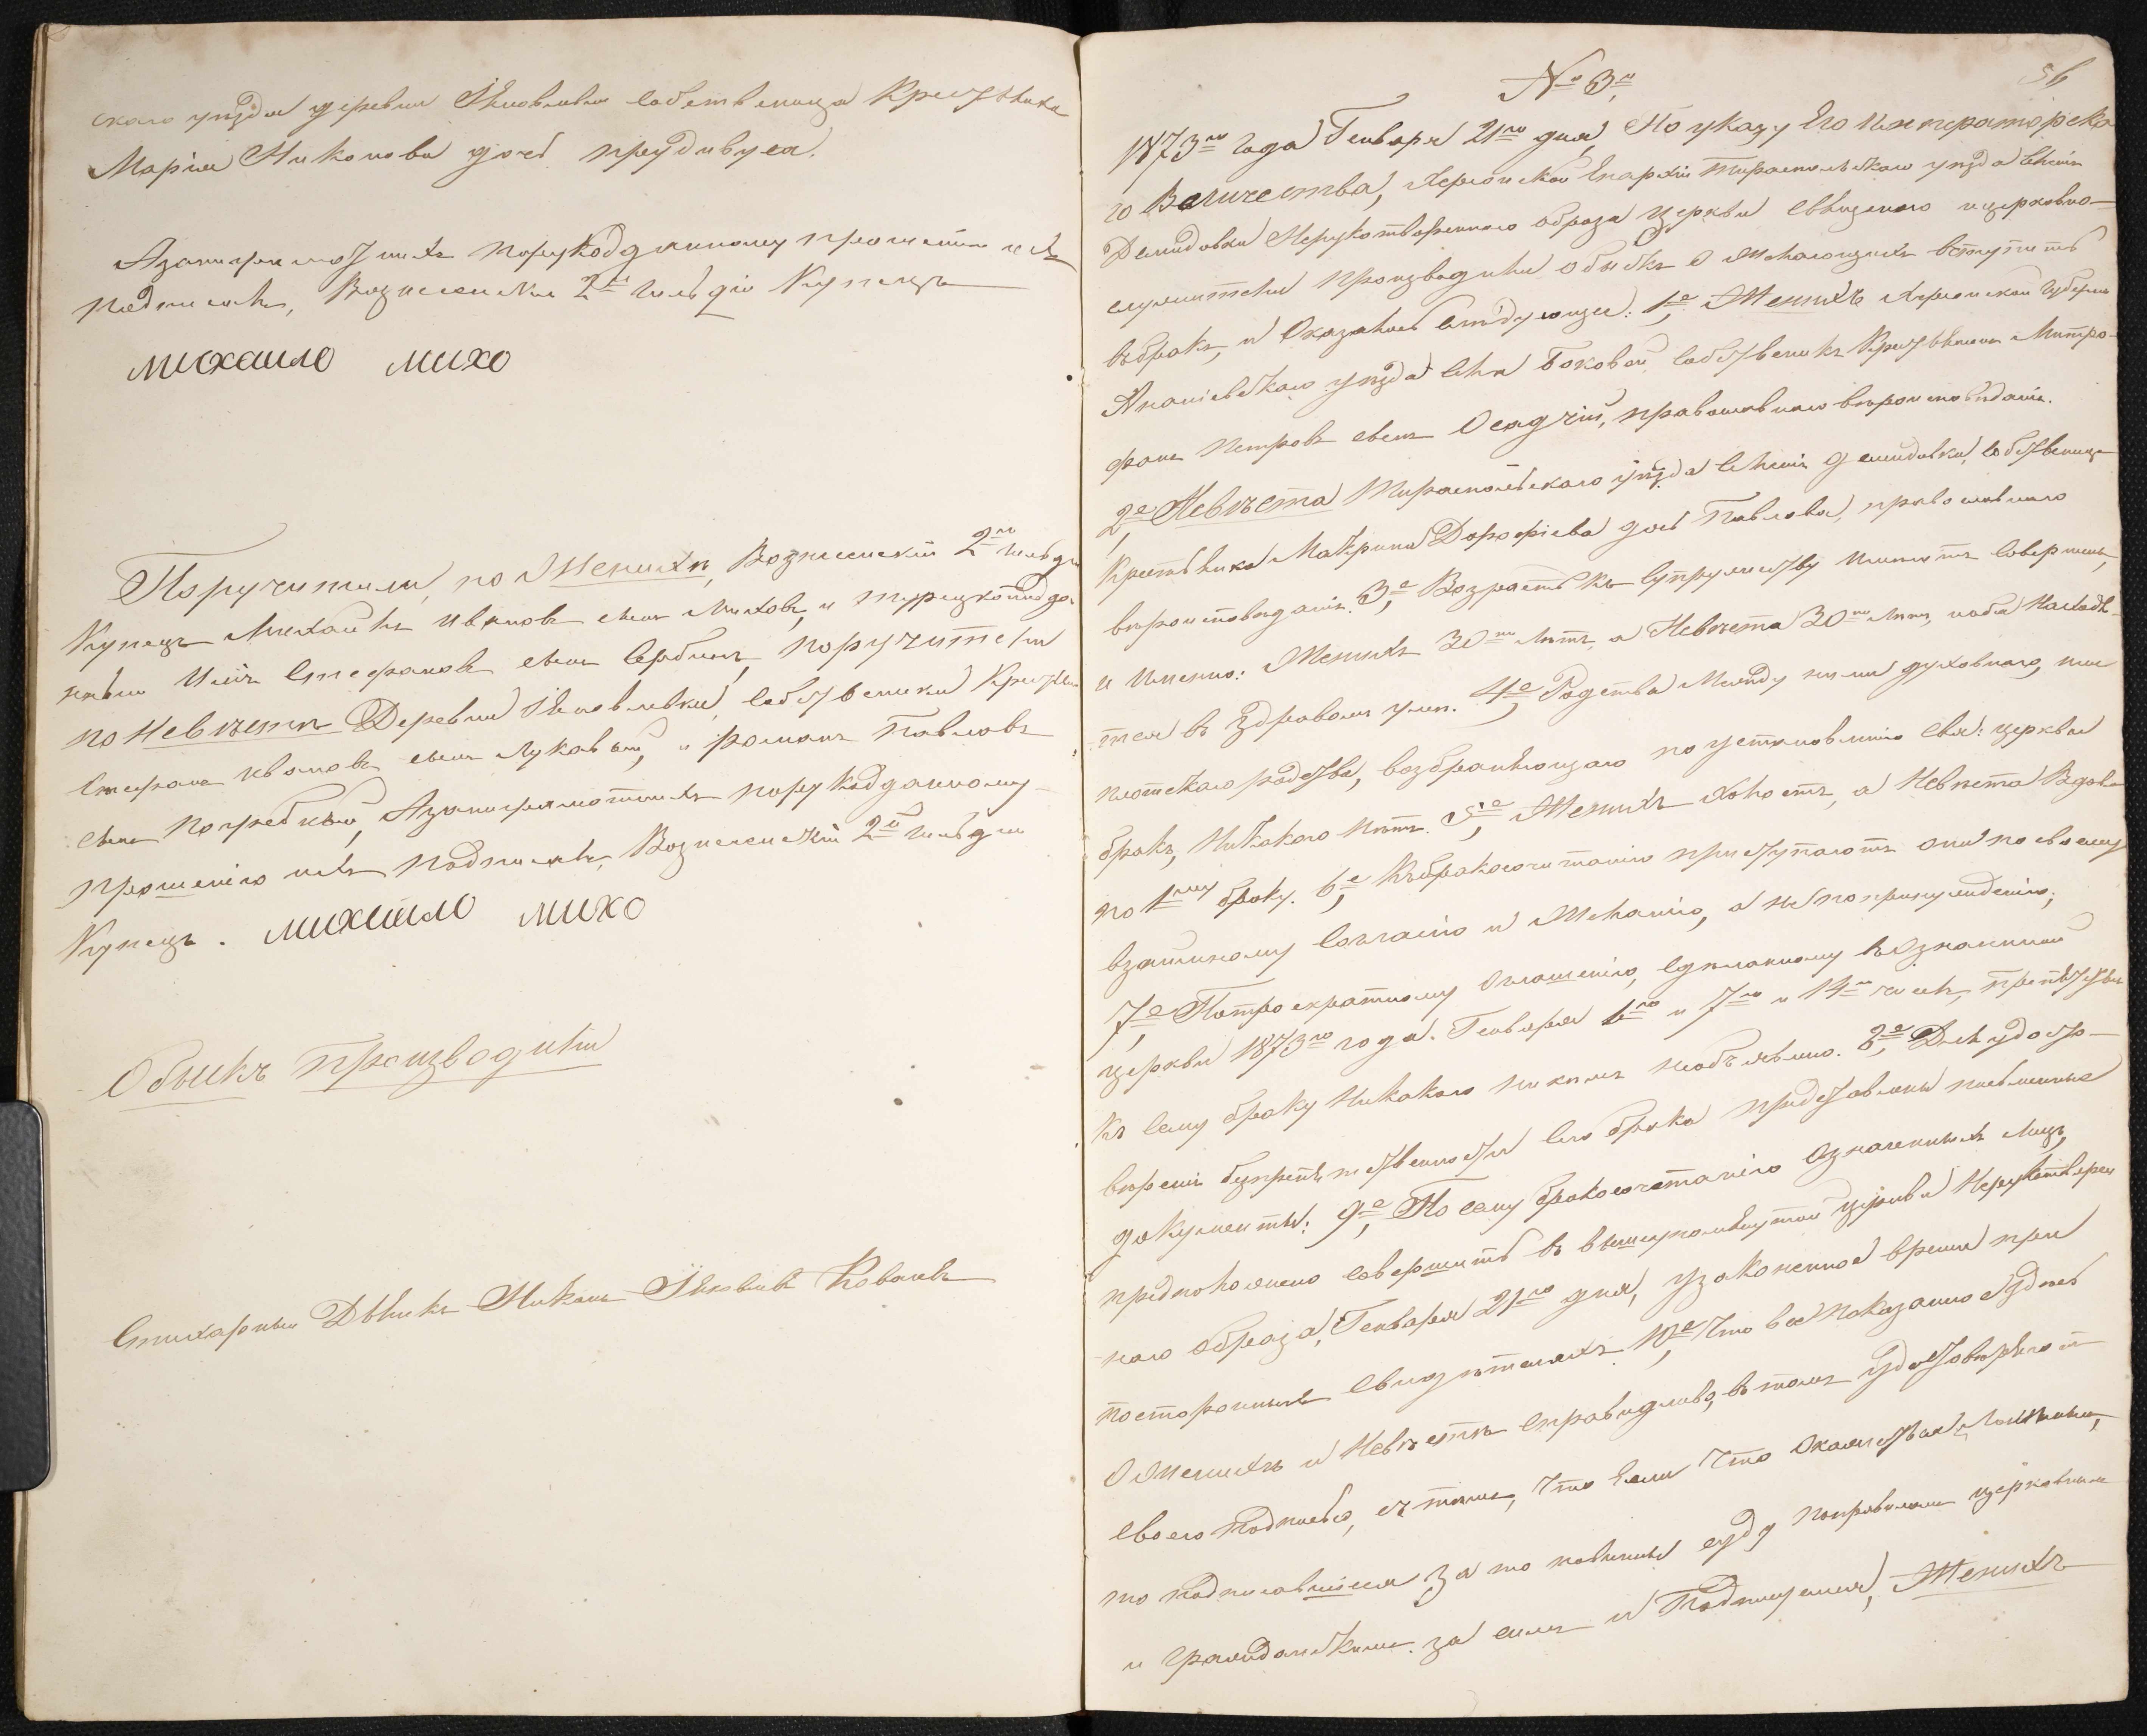 скаго уѣзда деревни Яковлевки собственица Крестьянка
Марія Никонова дочь прудивуся.
А за неграмотныхъ по рукоданному прошенію ихъ
подписалъ, Вознесенскій 2й гильдіи Купецъ
михаило михо
Поручители, по Женихѣ, Вознесенскій 2й гильдіи
Купецъ Михаилъ Ивановъ сынъ Миховъ, и турецкоподдан
ный Илія Стефановъ сынъ Сербинъ, поручители
по Невѣстѣ Деревни Яковлевки, собственики Крестьяне
Стефанъ Ивановъ сынъ Лукавый, и романъ Павловъ
сынъ Погребный, А за неграмотныхъ по рукоданному
прошенію ихъ подписалъ, Вознесенскій 2й гильдіи
Купецъ. михаило михо
Обыскъ производили
Стихарный Дьячкъ Никонъ Яковлевъ Ковалевъ
№ 3й 56
1873го года Генваря 21го дня, По указу Его Императорска
го Величества, Херсонской Епархіи Тираспольскаго уѣзда селенія
Демидовки Нерукотвореннаго образа церкви священно и церковно-
служители производили обыскъ о желающихъ вступить
въ бракъ, и Оказалось слѣдующее: 1е Женихъ Херсонской Губерніи
Ананіевскаго уѣзда села Боковой, собственикъ Крестьянинъ Митро-
фанъ Петровъ сынъ Осадчій, православнаго вѣроисповѣданія.
2е Невѣста Тираспольскаго уѣзда селенія демидовки, собственица
Крестьянка Макрина Дорофіева дочь Павлова, православнаго
вѣроисповѣданія. 3е Возрастъ къ супружеству имѣютъ совершенный,
и именно: Женихъ 30ти лѣтъ, а Невѣста 30ти лѣтъ, и оба находят-
тся въ здравомъ умѣ. 4е Родства между ними духовнаго, или
плотскаго родства, возбраняющаго по установленію свя: церкви
бракъ, Никакого нѣтъ. 5е Женихъ холостъ, а Невѣста Вдова
по 1му браку. 6е Къ бракосочитанію приступаютъ они по своему
взаимному согласію и желанію, а не по принужденію,
7е По троекратному оглашенію, сдѣланному въ означенной
церкви 1873го года. Генваря 6го и 7го и 14го чиселъ, препятствія
къ сему браку никакого никѣмъ необъявлено. 8е Для удосто-
вѣренія безпрепятственности сего брака представлены письменные
документы: 9е По сему бракосочетанію означенныхъ лицъ,
предположено совершить въ вышеупомянутой церкви Нерукотворен
наго образа, Генваря 21го дня, узаконенное время при
постороннихъ свидѣтеляхъ. 10е Что все показанное здѣсь
О женихѣ и Невѣстѣ справедливо, въ томъ удостовѣряютъ
своею подписью, съ тѣмъ, что Если что окажется ложнымъ,
то подписавшіеся за то повинны суду по правиламъ церковнымъ
и Гражданскимъ. за симъ и Подпишемся, Женихъ